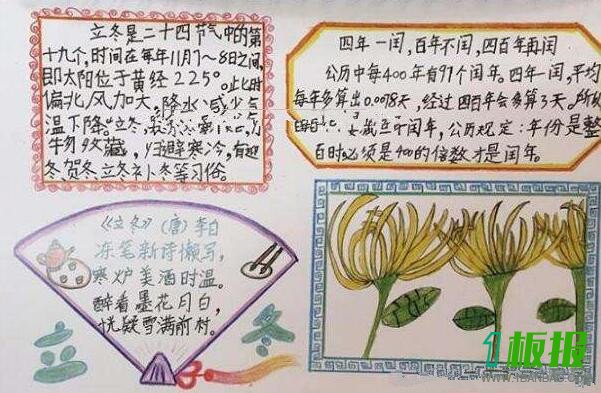 立冬是二十四节气中的第
十九个,时间在每年11月7～8日之间,
即太阳位于黄经225°。此时
偏北风加大,降水减少气
温下降。立冬
物收藏,归避寒冷,有迎
冬、贺冬、立冬补冬等习俗。
四年一闰,百年不闰,四百年再闰
公历中每400年有97个闰年。四年一闰,平均
每年多算出0.0078天,经过四百年会多算3天。所以
闰年,公历规定:年份是整
百时,必须是400的倍数才是闰年。
《立冬》(唐)李白
冻笔新诗懒写,
寒炉美酒时温。
醉看墨花月白,
恍疑雪满前村。
立冬
板报